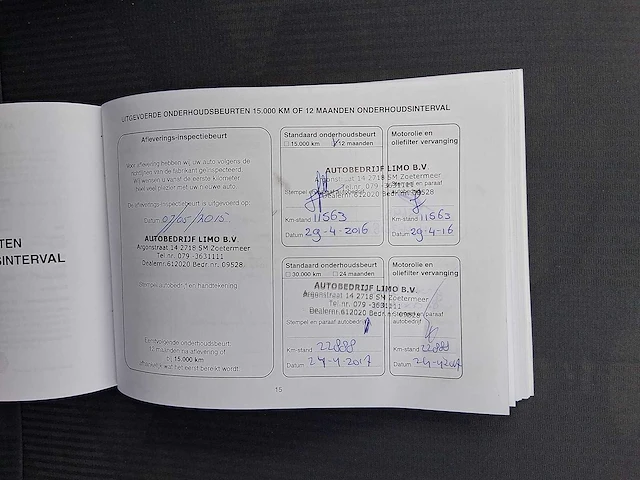 TEN
SINTERVAL
UITGEVOERDE ONDERHOUDSBEURTEN 15.000 KM OF 12 MAANDEN ONDERHOUDSINTERVAL
Afleverings-inspectiebeurt
Voor aflevering hebben wij uw auto volgens de
richtlijnen van de fabrikant geïnspecteerd.
Wij wensen u vanaf de eerste kilometer
heel veel plezier met uw nieuwe auto.
De afleverings-inspectiebeurt is uitgevoerd op:
Datum 07/05/2015
AUTOBEDRIJF LIMO B.V.
Argonstraat 14 2718 SM Zoetermeer
Tel.nr. 079 -3631111
Dealernr.612020 Bedr.nr. 09528.
Stempel autobedrijf en handtekening
Eerstvolgende onderhoudsbeurt
12 maanden na aflevering of
bij 15.000 km
afhankelijk wat het eerst bereikt wordt.
Standaard onderhoudsbeurt
15.000 km 12 maanden
AUTOBEDRIJF LIMO B.V.
Argonstraat 14 2718 SM Zoetermeer
Tel.nr. 079 -3631111
Dealernr.612020 Bedr.nr. 09528
Km-stand 11563
Datum 29-4-2016
Motorolie en
oliefilter vervanging
Km-stand 11563
Datum 29-4-16
Standaard onderhoudsbeurt
30.000 km 24 maanden
AUTOBEDRIJF LIMO B.V.
Argonstraat 14 2718 SM Zoetermeer
Tel.nr. 079 -3631111
Dealernr.612020 Bedr.nr. 09528
Stempel en paraaf autobedrijf
Km-stand 22888
Datum 24-4-2017
Motorolie en
oliefilter vervanging
Stempel en paraaf
autobedrijf
Km-stand 22888
Datum 24-4-2017
15